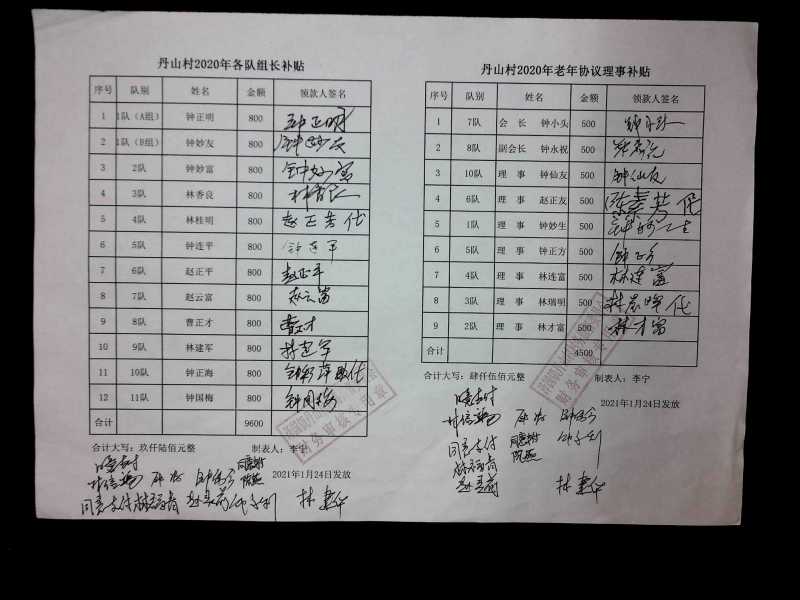 丹山村2020年各队组长补贴
序号 队别 姓名 金额 领款人签名
1 1队（A组） 钟正明 800 钟正明
2 1队（B组） 钟妙友 800 钟妙友
3 2队 钟妙富 800 钟妙富
4 3队 林香良 800 林香良
5 4队 林桂明 800 赵正芳代
6 5队 钟连平 800 钟连平
7 6队 赵正平 800 赵正平
8 7队 赵云富 800 赵云富
9 8队 曹正才 800 曹正才
10 9队 林建军 800 林建军
11 10队 钟正海 800
12 11队 钟国梅 800 钟国梅
合计 9600
合计大写：玖仟陆佰元整 制表人：李宁
2021年1月24日发放
同意支付
丹山村2020年老年协议理事补贴
序号 队别 姓名 金额 领款人签名
1 7队 会 长 钟小头 500
2 8队 副会长 钟永祝 500
3 10队 理 事 钟仙友 500 钟仙友
4 6队 理 事 赵正友 500 陈素芳代
5 1队 理 事 钟妙生 500 钟妙生
6 5队 理 事 钟正方 500 钟正方
7 4队 理 事 林连富 500 林连富
8 3队 理 事 林瑞明 500
9 2队 理 事 林才富 500 林才富
合计 4500
合计大写：肆仟伍佰元整 制表人：李宁
2021年1月24日发放
同意支付
财务审核专用章